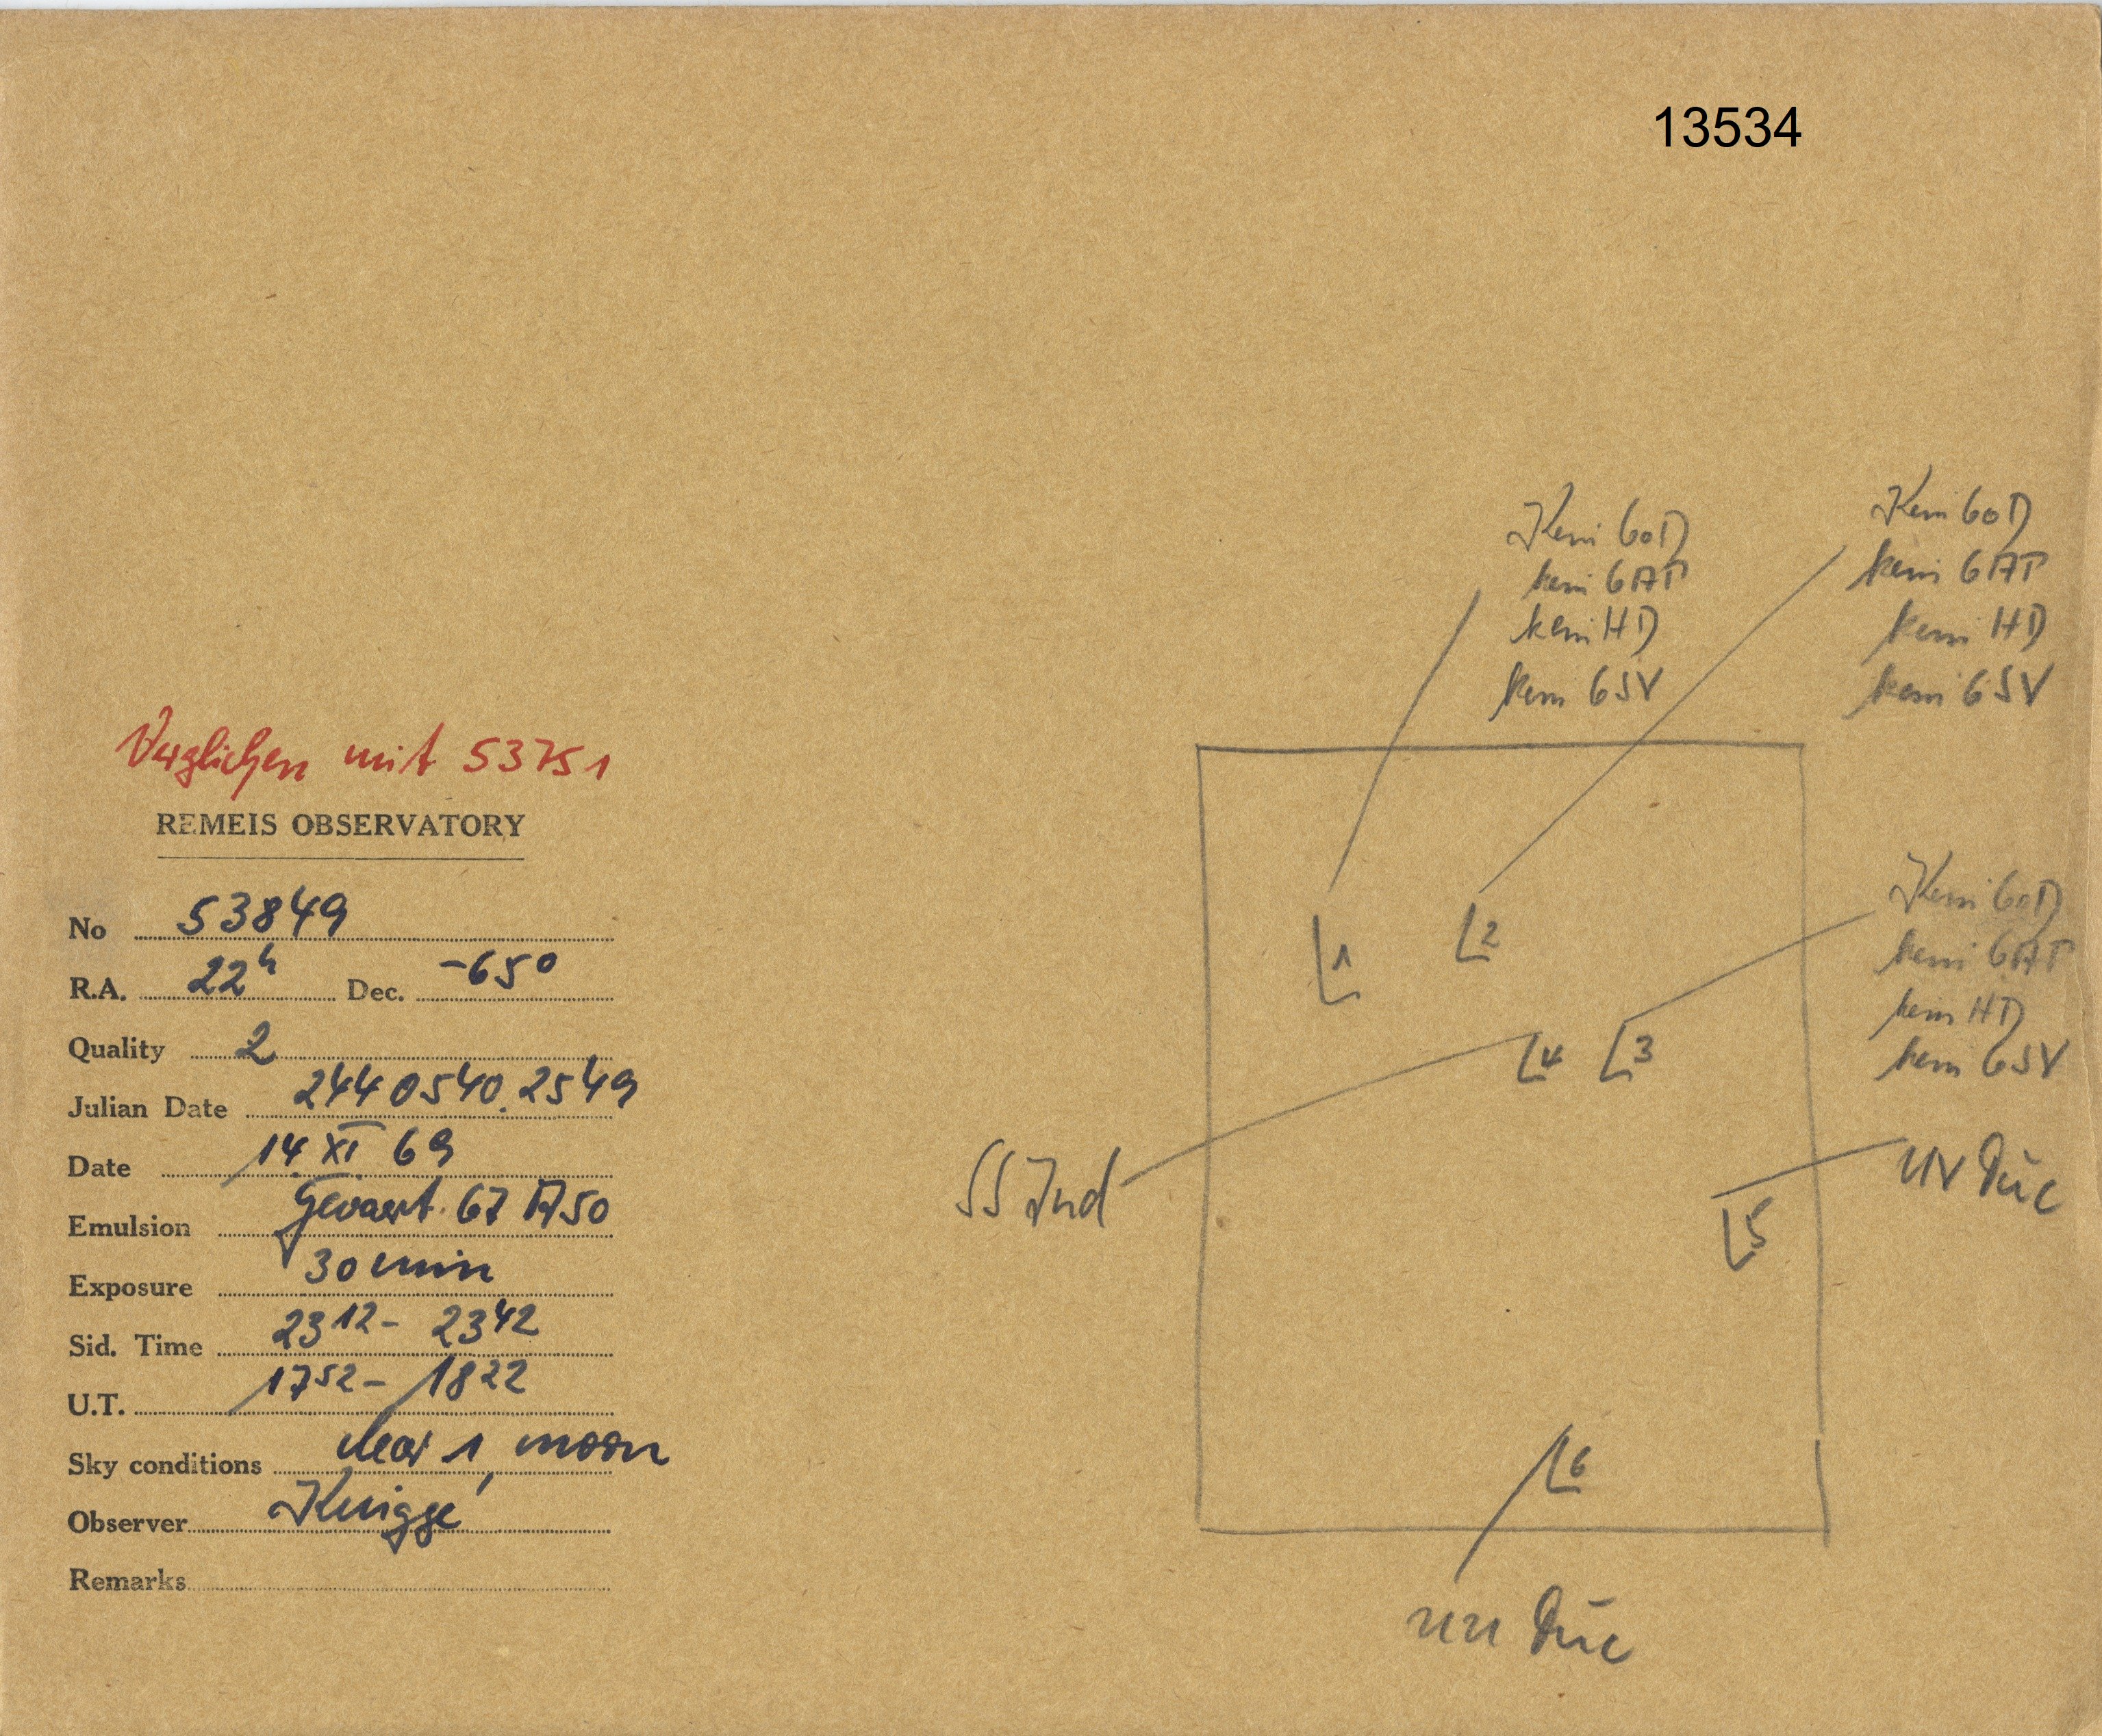 13534
Kein GoD
kein GAT
kein HD
kein GSV
Kein GoD
kein GAT
kein HD
kein GSV
Verglichen mit 53751
REMEIS OBSERVATORY
No 53849
R.A. 22h Dec. -65°
Quality 2
Julian Date 2440540.2549
Date 14. XI 69
Emulsion Gevaert 67 A50
Exposure 30 min
Sid. Time 23 12 - 23 42
U.T. 17 52 - 18 22
Sky conditions clear 1, moon
Observer Knigge
Remarks
1
2
3
4
5
6
Kein GoD
kein GAT
kein HD
kein GSV
SS Ind
UV Tuc
UU Tuc